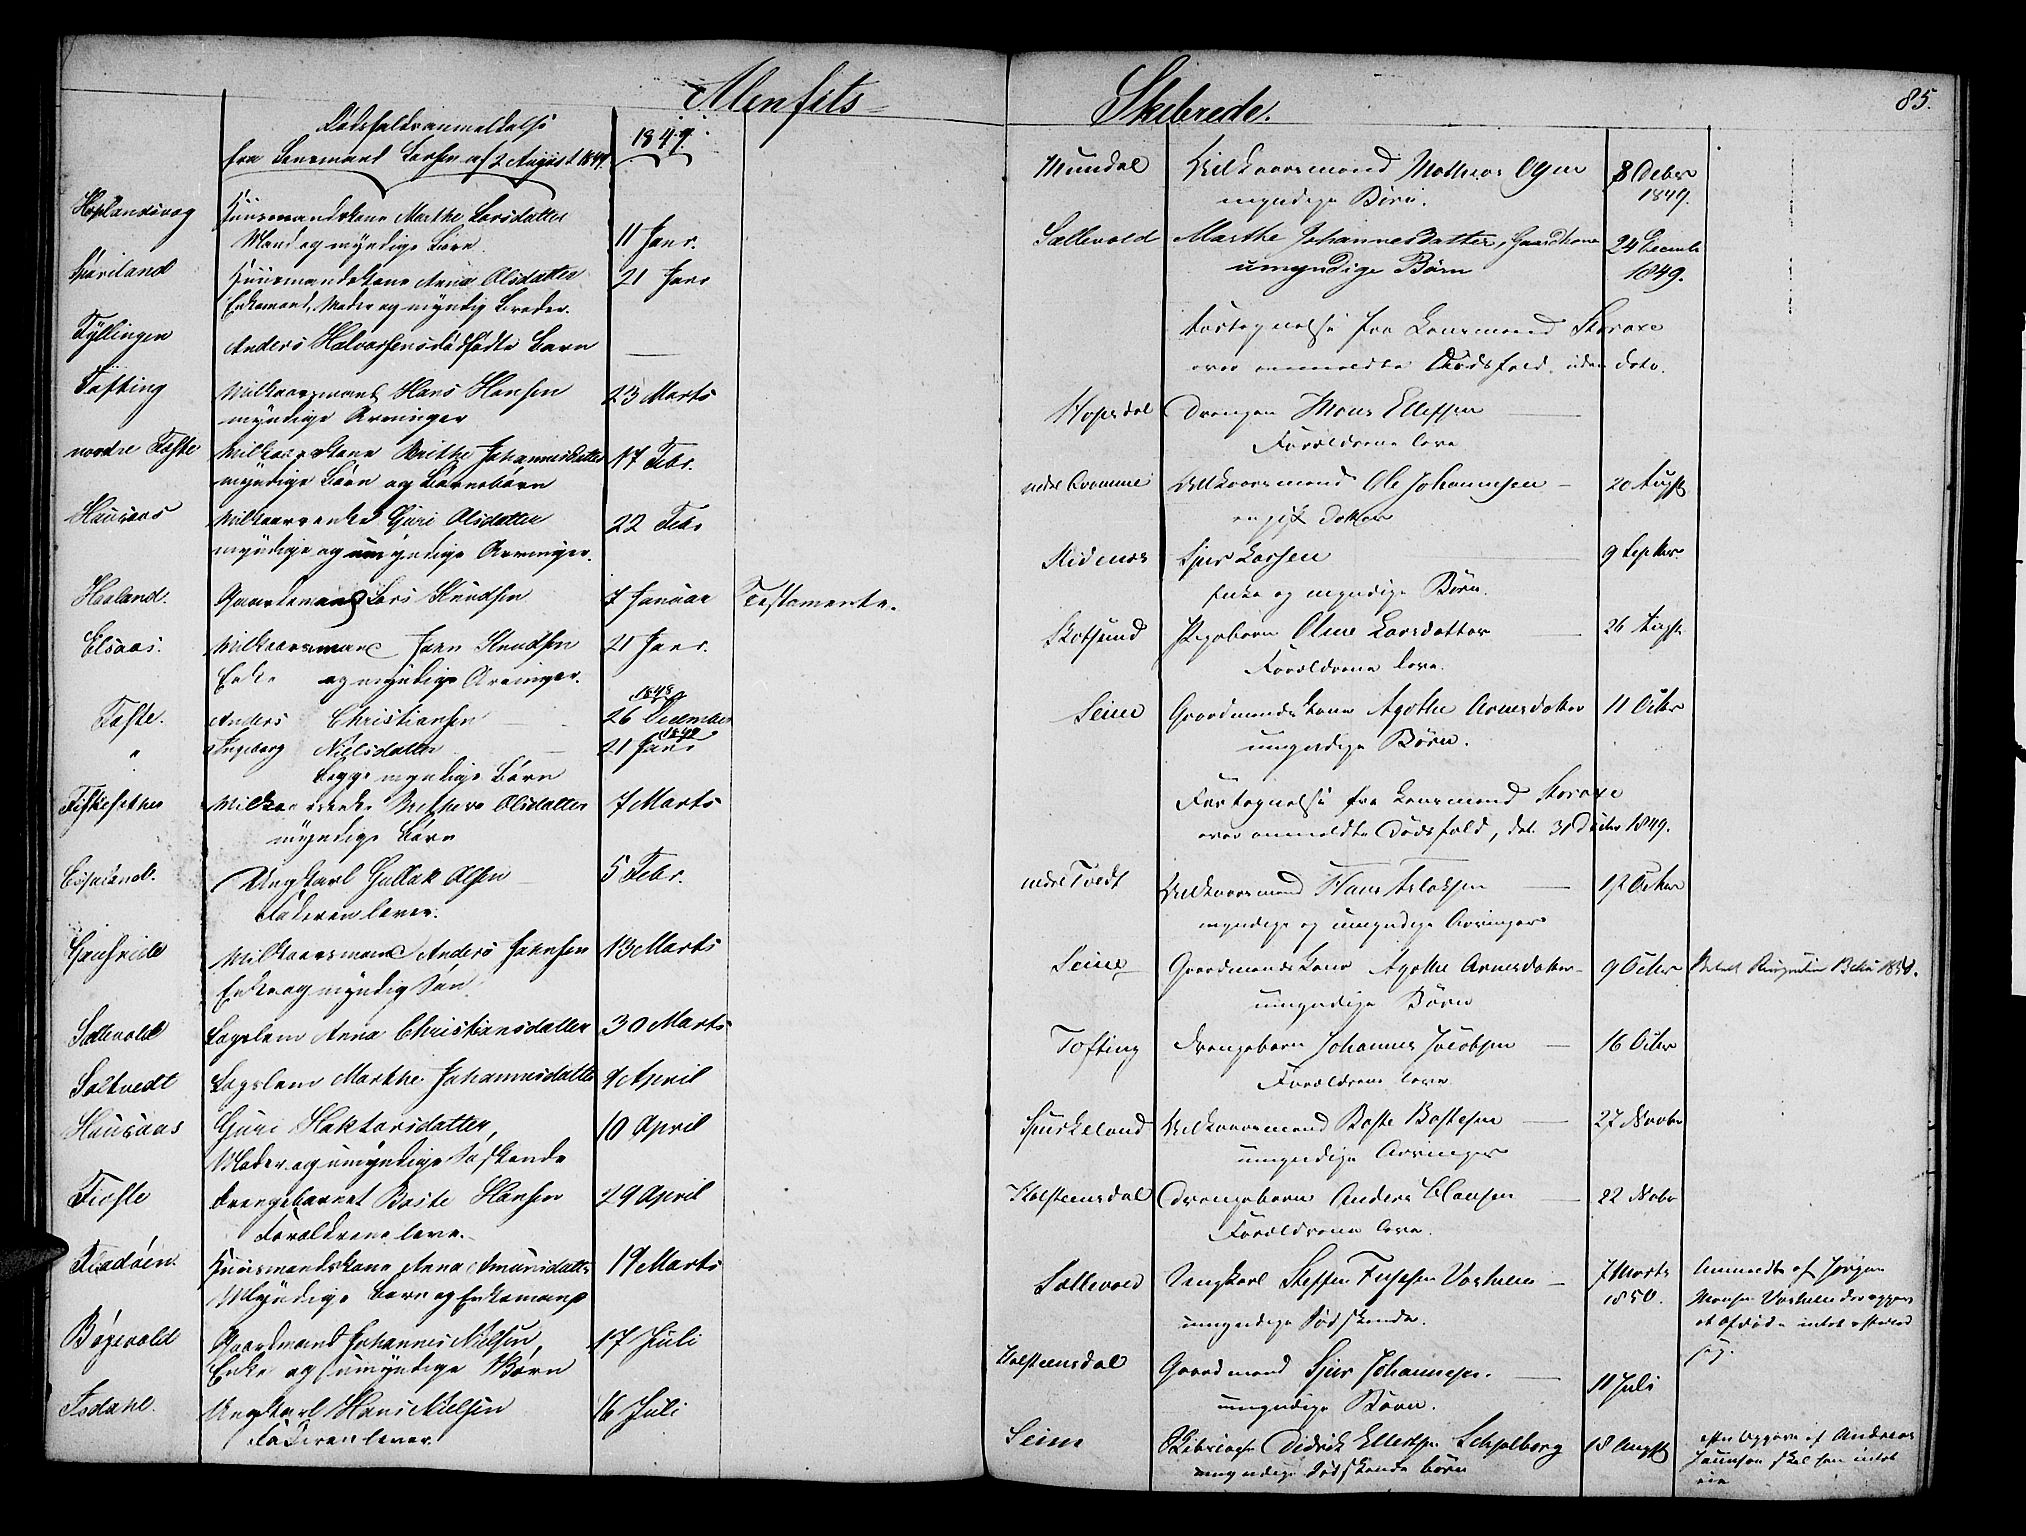 Alenfits
Skibrede.
85.
Dødsfaldsanmeldelse
fra Lensmand Larsen af 2 August 1849
1849.
Hoplandsvog
Huusmandskone Marthe Larsdatter
Mand og myndige Børn.
11 Janr.
Huusmandskone Anna Olsdatter
Enkemand, Moder og myndig Broder.
21 Janr
Tyllingen
Anders Halvorsens dødfødte Barn
Tofting
Vilkaarsmand Hans Hansen
myndige Arvinger
23 Marts
nordre Tofte
Vilkaarskone Brithe Johannesdatter
myndige Børn og Børnebørn
17 Febr.
Hausaas
Vilkaarsenke Guri Olsdatter
myndige og umyndige Arvinger.
22 Febr
Haaland.
Gaardmand Lars Knudsen
7 Januar
Testamente.
Elsaas.
Vilkaarsmand John Knudsen
Enke og myndige Arvinger.
21 Janr.
Tofte.
Anders Christiansen
1848
26 December
"
Ingeborg Nielsdatter
begge myndige Børn
1849
21 Janr
Fiskesether
Vilkaarsenke Olsdatter
myndige Børn
7 Marts
Ungkarl Gullak Olsen
Faderen lever.
5 Febr.
Vilkaarsmand Anders Johnsen
Enke og myndig Søn.
13 Marts
Sallevold
Lægslem Anna Christiansdatter
30 Marts
Saltvedt
Lægslem Marthe Johannesdatter
9 April
Hausaas
Guri Haktorsdatter,
Moder og umyndige Søskende
10 April
Drengebarnet Baste Hansen
Forældrene leve.
29 April
Huusmandskone Anna Amundsdatter
Myndige Børn og Enkemand
19 Marts
Bøgevold
Gaardmand Johannes Nielsen
Enke og umyndige Børn
17 Juli
Isdahl.
Ungkarl Hans Nielsen
Faderen lever.
16 Juli
Mundal
Vilkaarsmand Mathias Ogne
myndige Børn.
8 Octbr
1849.
Sallevold
Marthe Johannesdatter, Gaardkone
umyndige Børn
24 December
1849.
Fortegnelse fra Lensmand Storaxe
over anmeldte Dødsfald, uden dato.
Hopsdal
Drengen Mons Ellefsen
Forældrene leve
Vilkaarsmand Ole Johannesen
20 Augst
Ridnæs
Sjur Larsen
Enke og myndige Børn.
9 Septbr
Skotsund
Pigebarn Oline Larsdatter
Forældrene leve.
26 Augst
Seim
Gaardmandskone Agathe Arnesdatter
umyndige Børn.
11 Octbr
Fortegnelse fra Lensmand Storaxe
over anmeldte Dødsfald, dat. 31 Decbr 1849.
nedre Tvedt
Vilkaarsmand Hans Aslaksen
myndige og umyndige Arvinger
12 Octbr
Seim
Gaardmandskone Agathe Arnesdatter
umyndige Børn
9 Octbr
Tofting
Drengebarn Johannes Jacobsen
Forældrene leve
16 Octbr
Spurkeland
Vilkaarsmand Baste Bastesen
umyndige Arvinger
27 Novbr
Holsteensdal
Drengebarn Anders Clausen
Forældrene leve.
22 Novbr
Sallevold
Ungkarl Steffen Vorheim
umyndige Sødskende.
7 Marts
1850.
Anmeldt af Jørgen
Monsen
Holsteensdal
Gaardmand Sjur Johannesen.
umyndige Børn.
11 Juli
Seim
Didrik Ellertsen Schjelberg
umyndige Sødskende børn
18 Augst
efter Opgave af Andreas